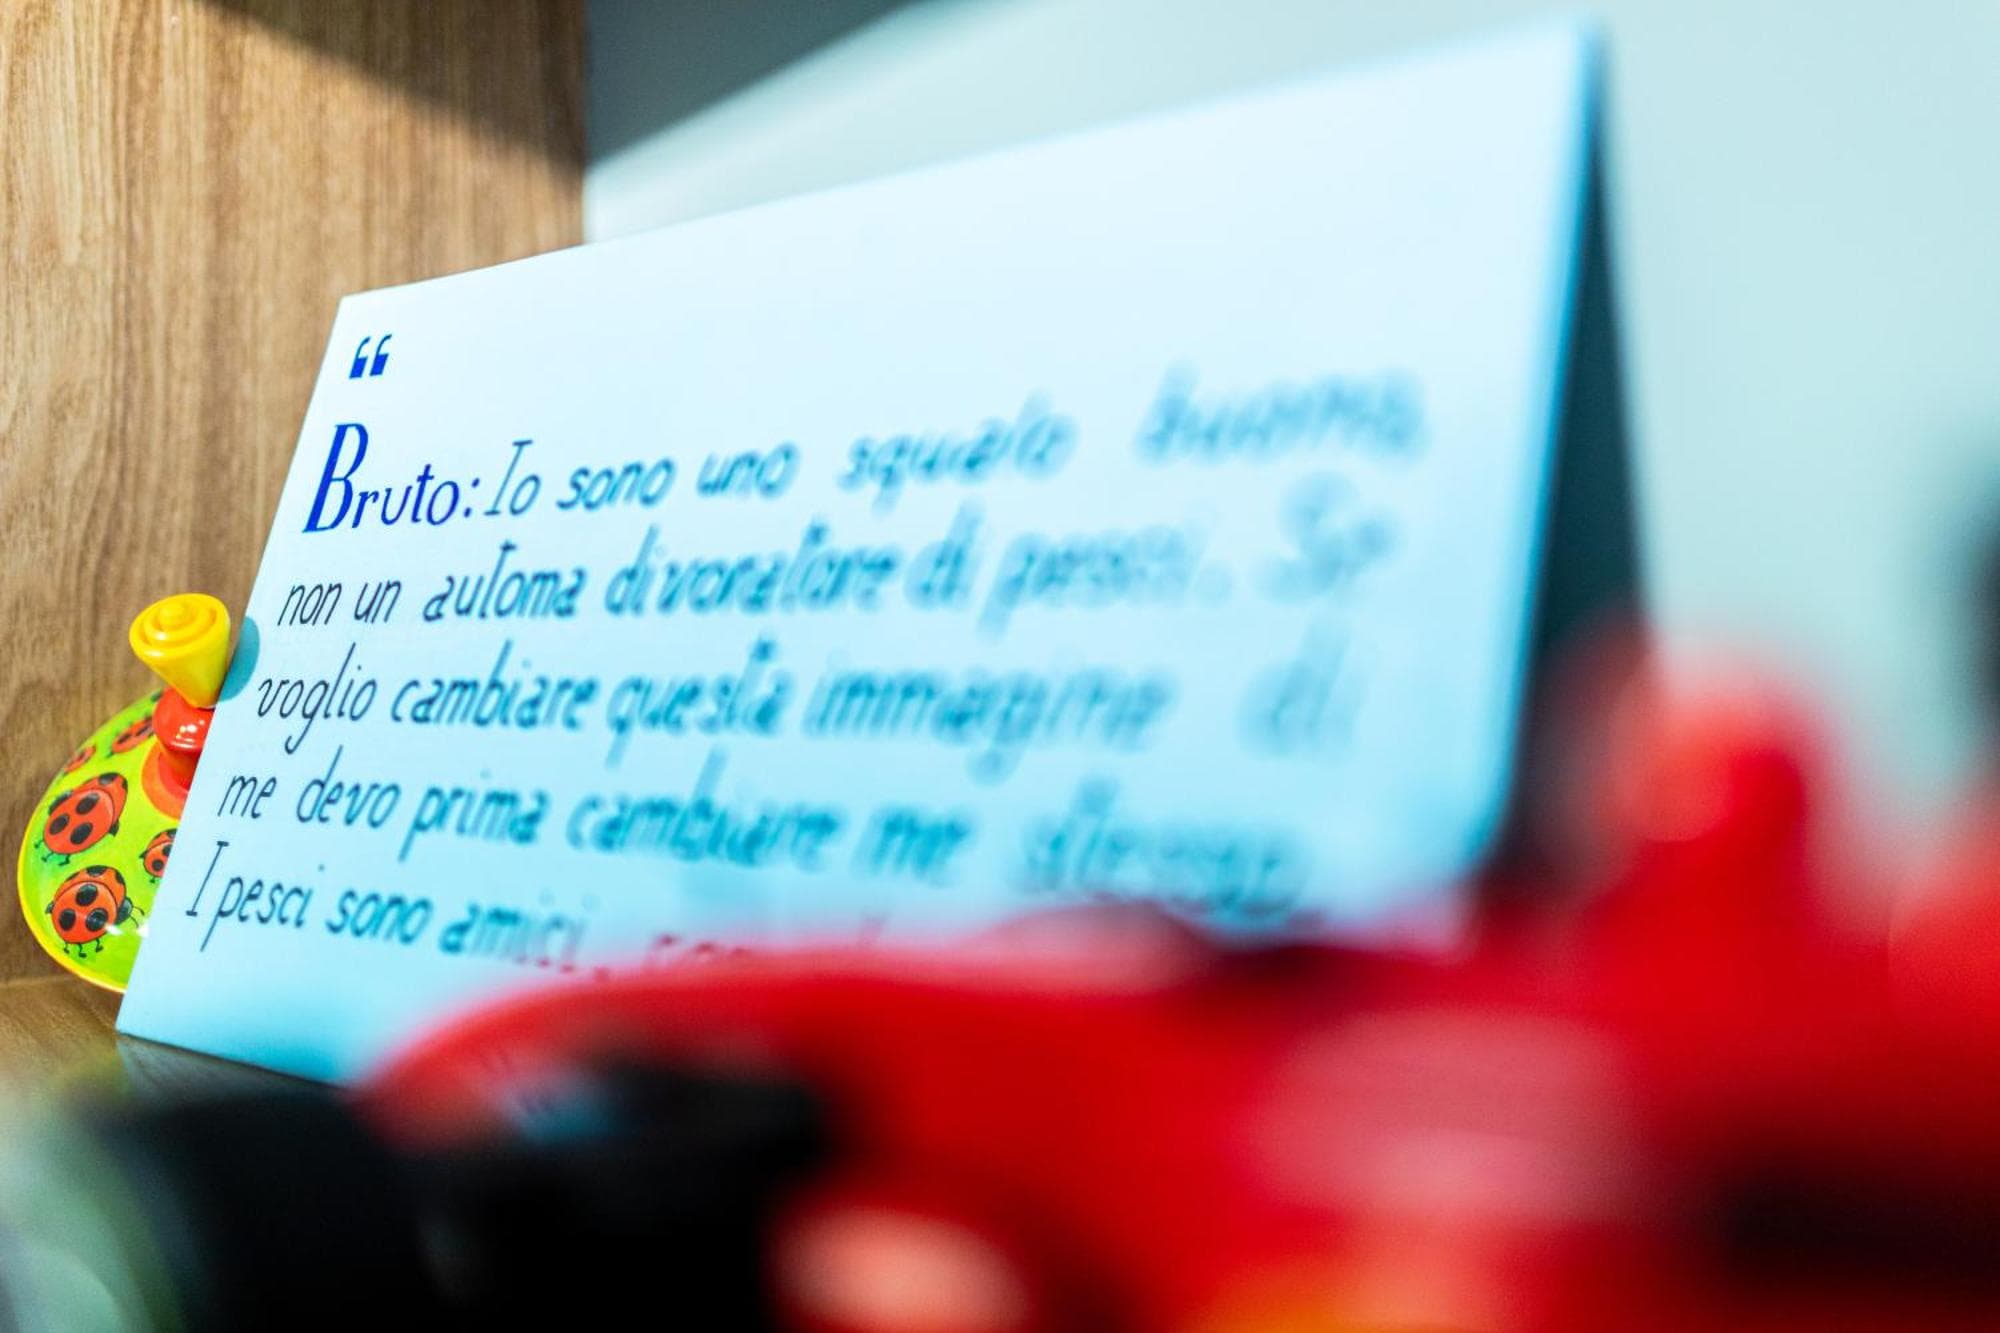 “
Bruto: Io sono uno squalo buono,
non un automa divoratore di pesci. Se
voglio cambiare questa immagine di
me devo prima cambiare me stesso.
I pesci sono amici,